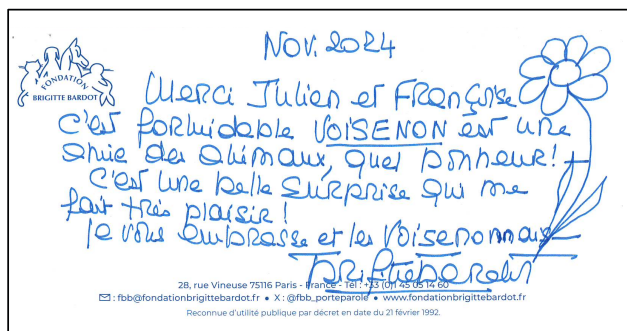 Nov. 2024
FONDATION
BRIGITTE BARDOT
Merci Julien et Françoise
C'est formidable VOISENON est une
amie des animaux, quel bonheur ! +
C'est une belle surprise qui me
fait très plaisir !
je vous embrasse et les Voisenonnais
Brigitte Bardot
28, rue Vineuse 75116 Paris - France - Tél : +33 (0)1 45 05 14 60
✉ : fbb@fondationbrigittebardot.fr • X : @fbb_porteparole • www.fondationbrigittebardot.fr
Reconnue d'utilité publique par décret en date du 21 février 1992.